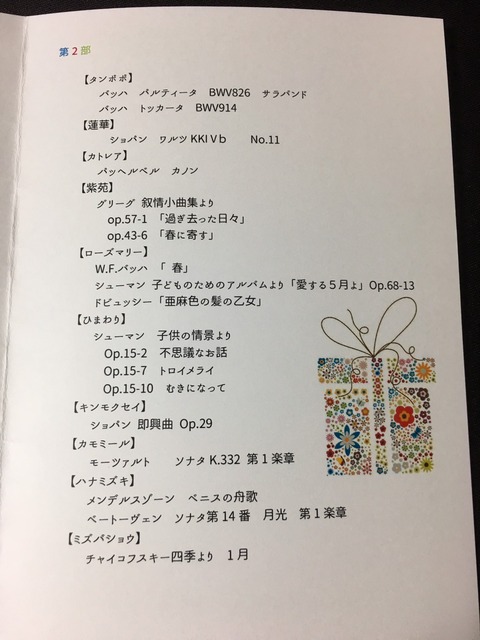 第2部
【タンポポ】
バッハ　パルティータ　BWV826　サラバンド
バッハ　トッカータ　BWV914
【蓮華】
ショパン　ワルツKKⅣb　No.11
【カトレア】
パッヘルベル　カノン
【紫苑】
グリーグ 叙情小曲集より
op.57-1 「過ぎ去った日々」
op.43-6 「春に寄す」
【ローズマリー】
W.F.バッハ 「 春」
シューマン 子どものためのアルバムより「愛する5月よ」Op.68-13
ドビュッシー「亜麻色の髪の乙女」
【ひまわり】
シューマン　子供の情景より
Op.15-2　不思議なお話
Op.15-7　トロイメライ
Op.15-10　むきになって
【キンモクセイ】
ショパン 即興曲 Op.29
【カモミール】
モーツァルト　ソナタK.332 第1楽章
【ハナミズキ】
メンデルスゾーン　ベニスの舟歌
ベートーヴェン　ソナタ第14番　月光　第1楽章
【ミズバショウ】
チャイコフスキー四季より　1月